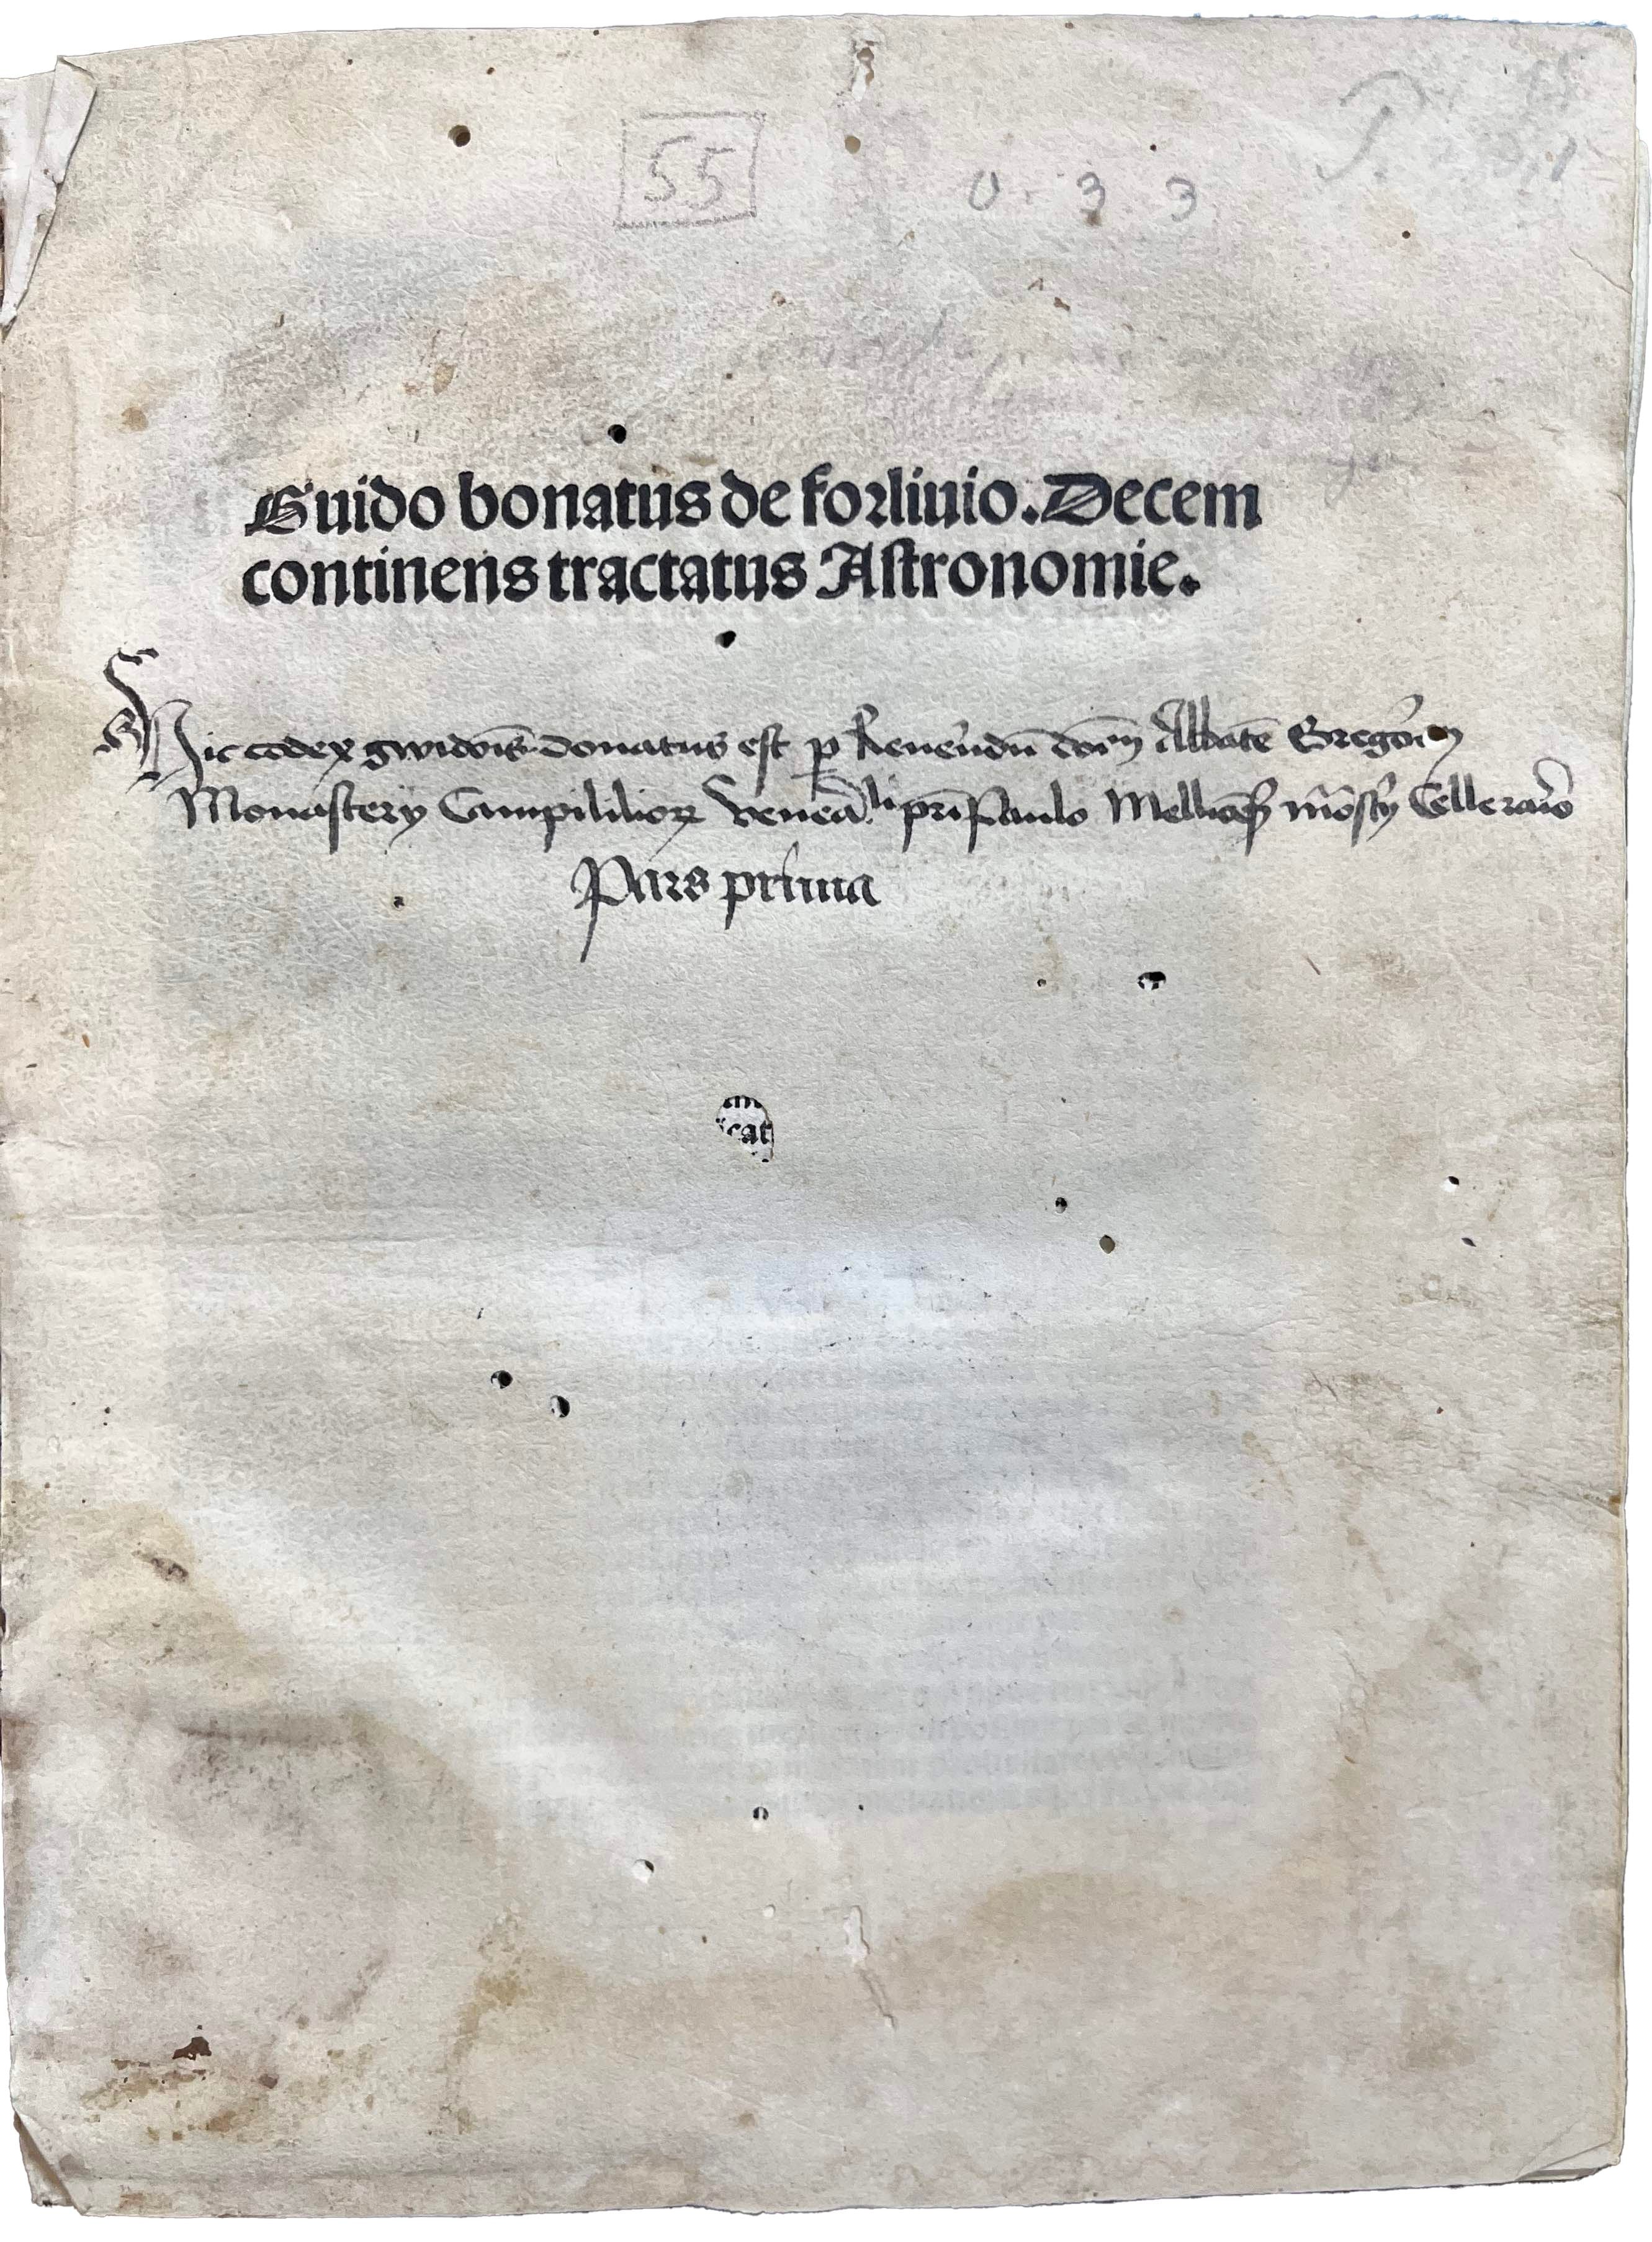 55
0. 3 3
Guido bonatus de forliuio. Decem
continens tractatus Astronomie.
Hic codex gwidoīs donatus est p Reuerendū dom̄ Abbatē Gregoriū
Monastery Campililiorꝝ venerā.li pr̄i Paulo Mellicēs mōsty Cellerario
Pars prima
cat